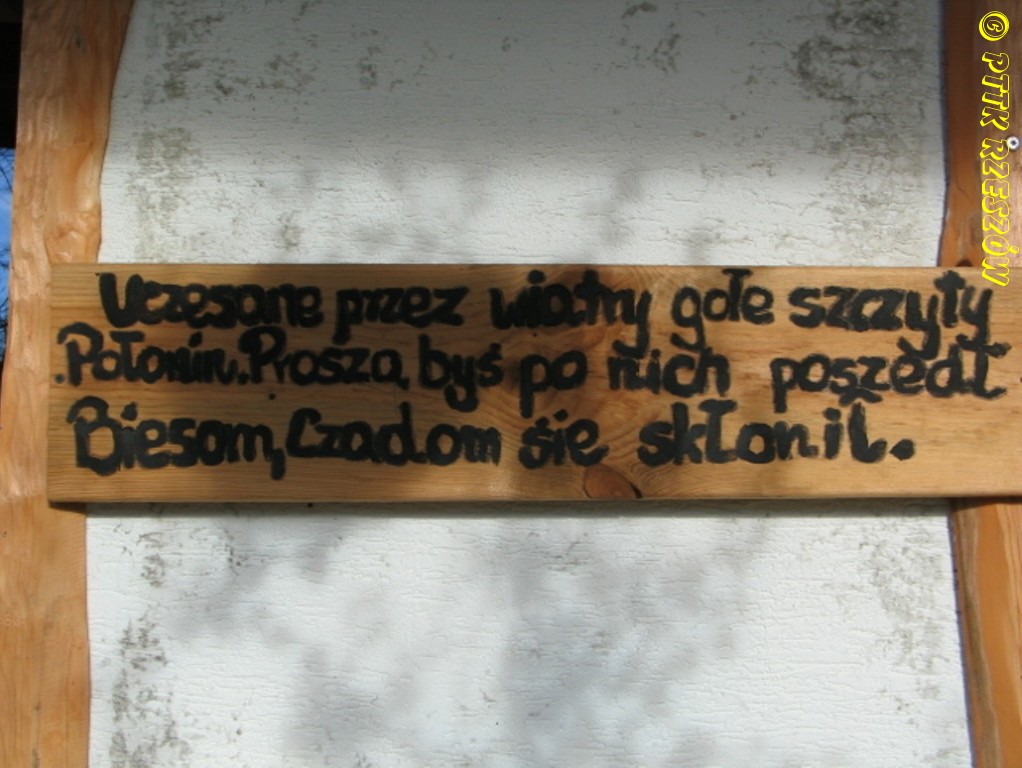 Uczesane przez wiatry gołe szczyty
Połonin. Proszą, byś po nich poszedł
Biesom, Czadom się skłonił.
© PTTK RZESZÓW